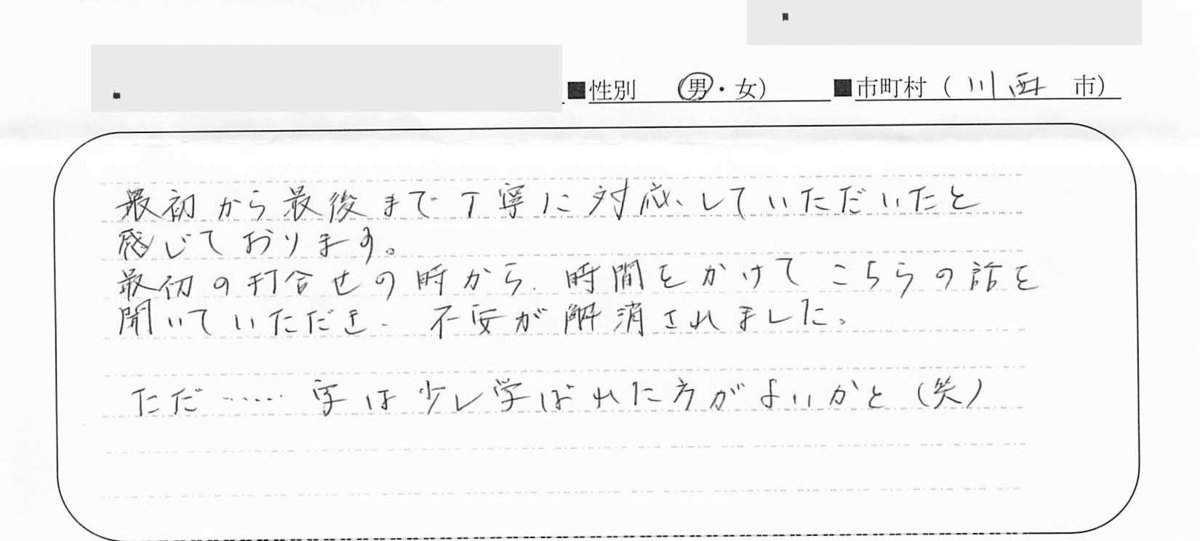 ■性別 (男・女) ■市町村 (川西 市)
最初から最後まで丁寧に対応していただいたと
感じております。
最初の打合せの時から、時間をかけてこちらの話を
聞いていただき、不安が解消されました。
ただ……字は少し学ばれた方がよいかと(笑)